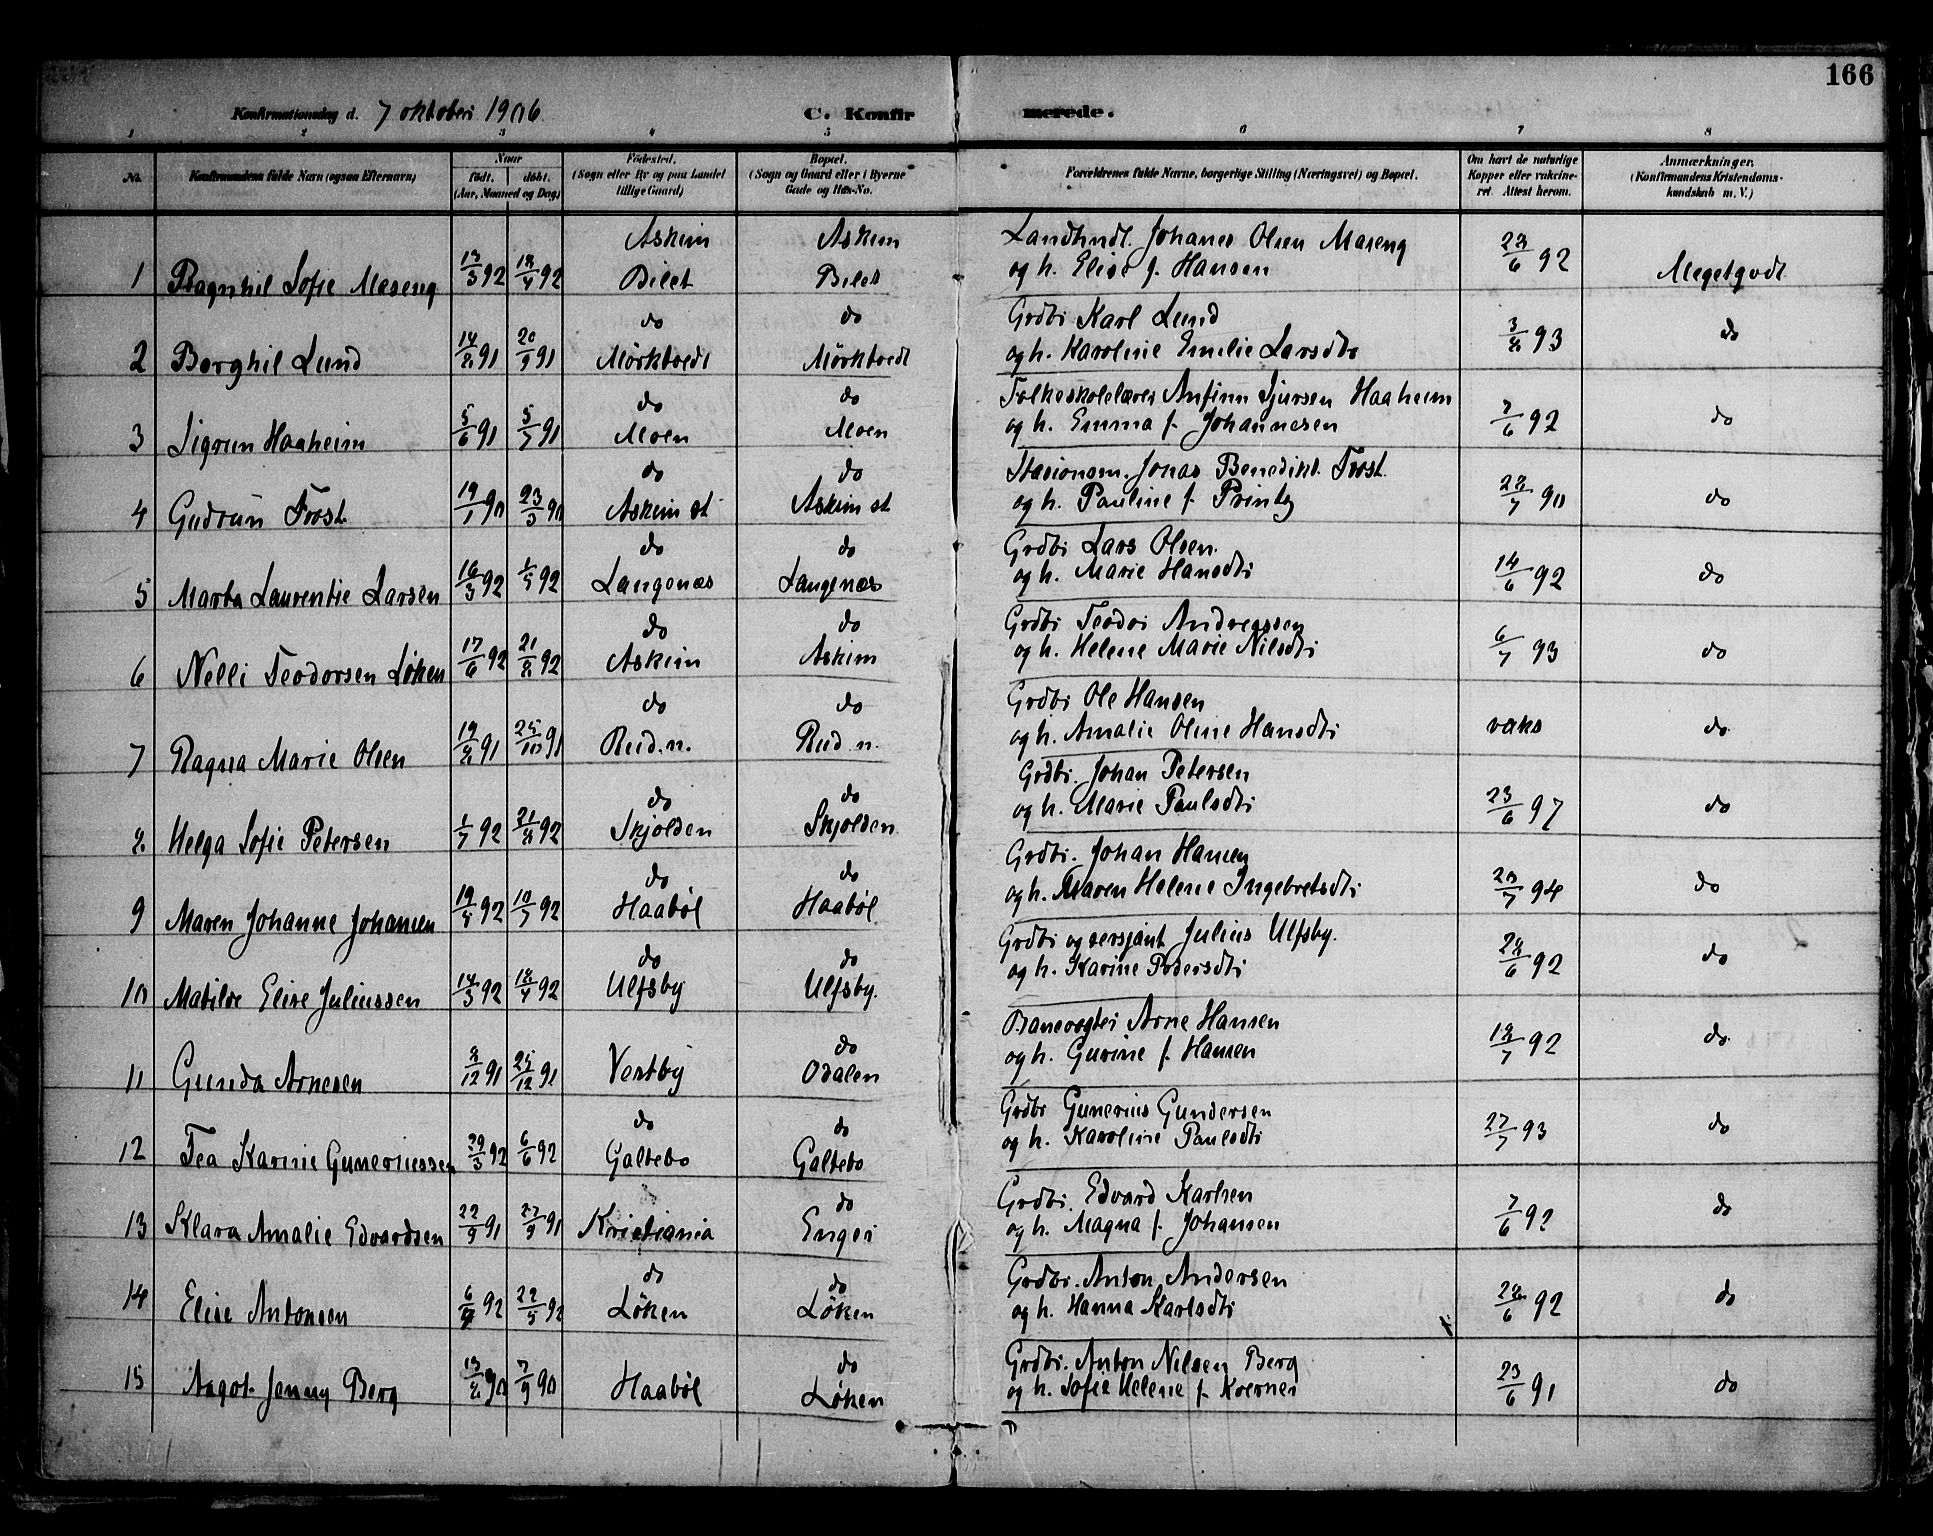 166
Konfirmationsdag d. 7 oktober 1906
C. Konfirmerede.
1 2 3 4 5 6 7 8
No.
Konfirmandens fulde Navn (ogsaa Efternavn)
Naar
født. døbt.
(Aar, Maaned og Dag)
Fødested.
(Sogn eller By og paa Landet
tillige Gaard)
Bopæl.
(Sogn og Gaard eller i Byerne
Gade og Hus-No.
Forældrenes fulde Navne, borgerlige Stilling (Næringsvei) og Bopæl.
Om havt de naturlige
Kopper eller vakcine-
ret. Attest herom.
Anmærkninger.
(Konfirmandens Kristendoms-
kundskab m. V.)
Askim Askim Landhndl. Johanes Olsen Maseng
1 Ragnhil Sofie Maseng 13/3 92 18/4 92 Bilet Bilet og h. Elise f. Hansen 28/6 92 Megetgodt
do do Grdbr Karl Lund
2 Borghil Lund 14/8 91 20/9 91 Mørktvedt Mørktvedt og h. Karoline Emilie Larsdtr 3/8 93 do
do do Folkeskolelærer Anfinn Sjursen Haaheim
3 Sigrun Haaheim 5/6 91 5/7 91 Moen Moen og h. Emma f. Johannesen 7/6 92 do
do do Stasionsm. Jonas Benedikt Frost.
4 Gudrun Frost 19/1 90 23/3 90 Askim st Askim st og h. Pauline f. Printz 28/7 90 do
do do Grdbr Lars Olsen.
5 Marta Laurentie Larsen 16/3 92 1/5 92 Langenæs Langenæs og h. Marie Hansdtr 14/6 92 do
do do Grdbr Teodor Andreassen
6 Nelli Teodorsen Løken 17/6 92 21/8 92 Askim Askim og h. Helene Marie Nilsdtr 6/7 93 do
do do Grdbr Ole Hansen
7 Ragna Marie Olsen 19/8 91 25/10 91 Rud. n. Rud. n. og h. Amalie Oline Hansdtr vaks do
do do Grdbr. Johan Petersen
8. Helga Sofie Petersen 1/7 92 21/8 92 Skjolden Skjolden. og h. Marie Paulsdtr 23/6 97 do
do do Grdbr. Johan Hansen
9 Maren Johanne Johansen 19/4 92 10/7 92 Haabøl Haabøl og h. Maren Helene Ingebretsdtr 20/7 94 do
do do Grdbr og sersjant Julius Ulfsby.
10 Matilde Elise Juliussen 14/3 92 18/4 92 Ulfsby Ulfsby. og h. Karine Pedersdtr 28/6 92 do
do Banevogter Arne Hansen
11 Gunda Arnesen 8/12 91 25/12 91 Vestby Odalen og h. Gurine f. Hansen 18/7 92 do
do do Grdbr Gunerius Gundersen
12 Tea Karine Guneriussen 29/3 92 6/6 92 Galtebo Galtebo og h. Karoline Paulsdtr 27/7 93 do
do Grdbr. Edvard Karlsen
13 Klara Amalie Edvardsen 22/9 91 27/9 91 Kristiania Enger og h. Magna f. Johansen 7/6 92 do
do do Grdbr. Anton Andersen
14 Elise Antonsen 6/4 92 22/5 92 Løken Løken og h. Hanna Karlsdtr 28/6 92 do
do Grdbr. Anton Nilsen Berg
15 Aagot Jenny Berg 13/8 90 7/9 90 Haabøl Løken og h. Sofie Helene f. Kverner 23/6 91 do